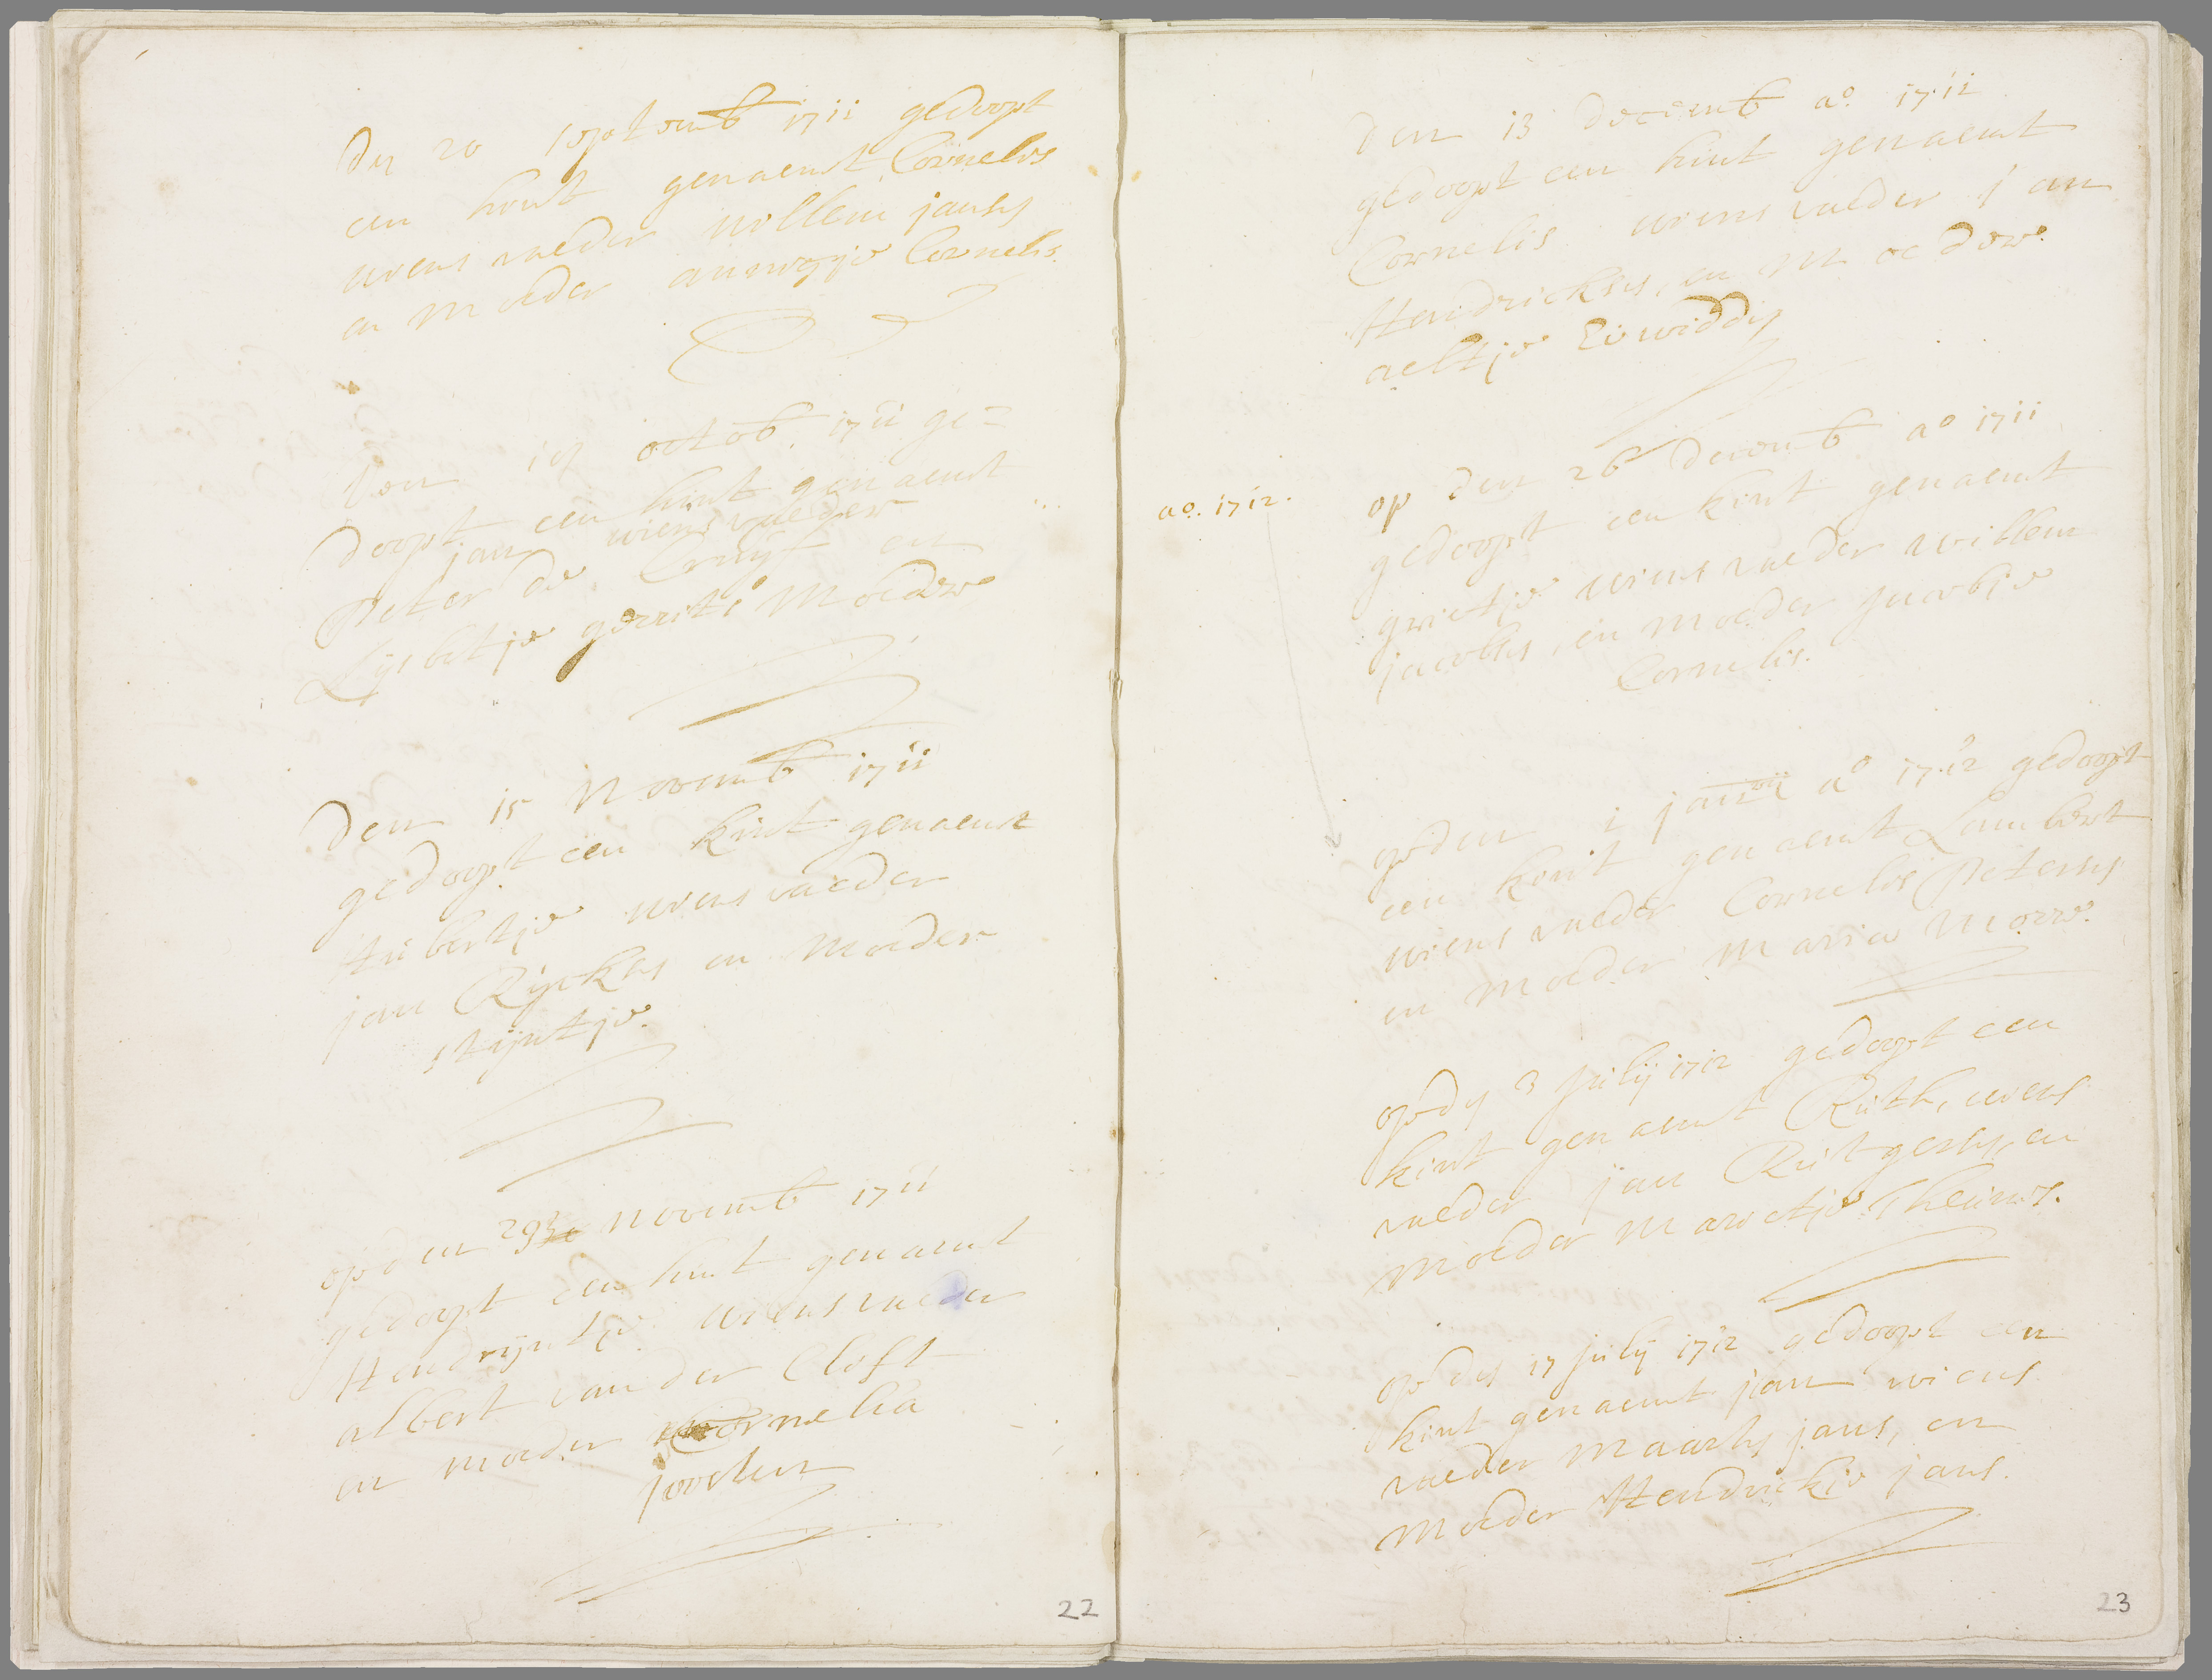 den 20 septemb 1711 gedoopt
een kint genaemt Cornelis
wiens vaeder willem jansz
en moeder annegje Cornelis
den octob. 1711 ge=
doopt een kint genaemt
jan wiens vaeder
Peter de Cruijf en
Lijsbetje gerrits moeder
Den 15 Novemb 1711
gedoopt een kint genaemt
Huibertje wiens vaeder
jan Rijcksz en moeder
stijntje.
op den 29 novemb 1711
gedoopt een kint genaemt
Hendrijntje wiens vaeder
albert van der Cloft
en moeder Cornelia
den 13 decemb ao. 1711
gedoopt een kint genaemt
Cornelis wiens vaeder jan
Hendricksz, en moeder
aeltje
ao. 1712.
op den 26 decemb ao 1711
gedoopt een kint genaemt
grietje wiens vaeder willem
jacobsz, en moeder jacobje
Cornelis.
op den 1 janrij ao 1712 gedoopt
een kint genaemt Lambert
wiens vaeder Cornelis Petersz
en moeder Maria Morre.
op dn 3 julij 1712 gedoopt een
kint genaemt Ruth, wiens
vaeder jan Rutgersz, en
moeder Marretje Theunis.
op dn 17 julij 1712 gedoopt een
kint genaemt jan wiens
vaeder Maarts jans, en
moeder Hendrickje jans.
22
23